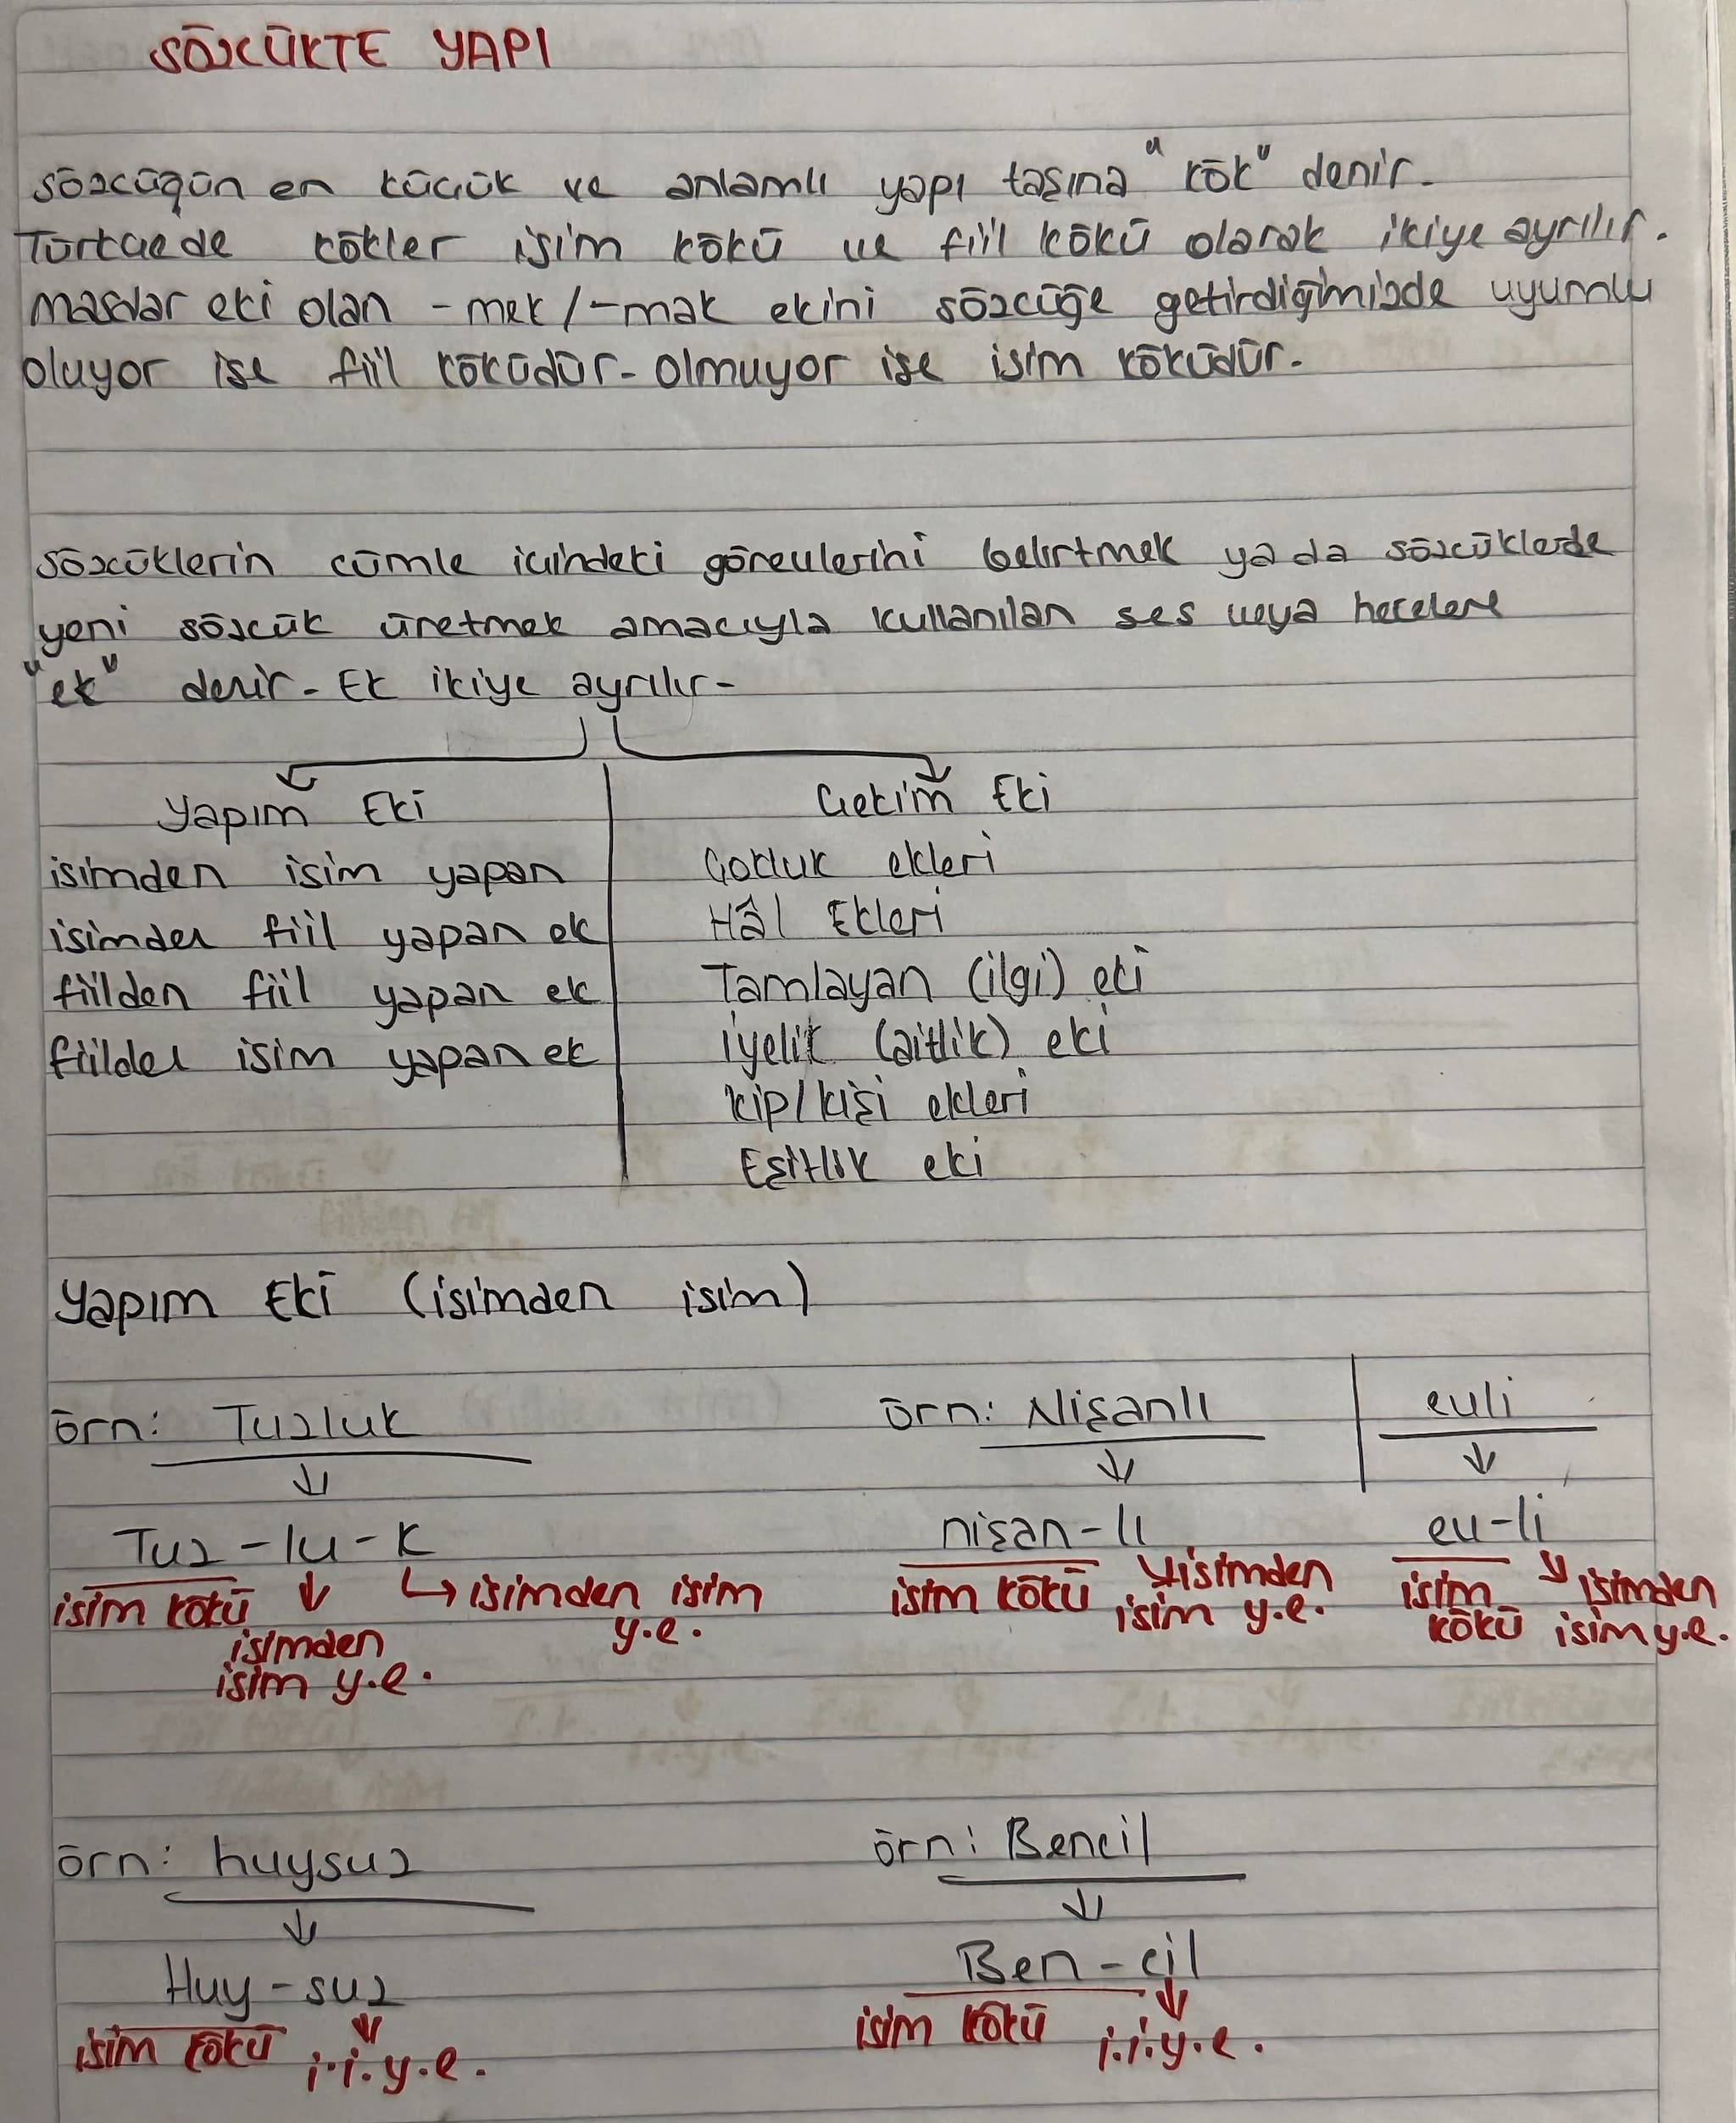 SÖZCÜKTE YAPI
Sözcüğün en küçük ve anlamlı yapı taşına "kök" denir.
Türkçede kökler isim kökü ve fiil kökü olarak ikiye ayrılır.
Mastar eki olan -mek/-mak ekini sözcüğe getirdiğimizde uyumlu
oluyor ise fiil köküdür. Olmuyor ise isim köküdür.
Sözcüklerin cümle içindeki görevlerini belirtmek yada sözcüklerde
yeni sözcük üretmek amacıyla kullanılan ses veya hecelere
"ek" denir. Ek ikiye ayrılır.
Yapım Eki
isimden isim yapan
isimden fiil yapan ek
fiilden fiil yapan ek
fiilden isim yapan ek
Çekim Eki
Çokluk ekleri
Hâl Ekleri
Tamlayan (ilgi) eki
İyelik (aitlik) eki
Kip/kişi ekleri
Eşitlik eki
Yapım Eki (isimden isim)
örn: Tuzluk
örn: Nişanlı
evli
Tuz-lu-k
nişan-lı
ev-li
isim kökü
isimden
isim y.e.
isimden isim
y.e.
isim kökü
isimden
isim y.e.
isim
kökü
isimden
isim y.e.
örn: huysuz
örn: Bencil
Huy-suz
Ben-cil
isim kökü i.i.y.e.
isim kökü i.i.y.e.